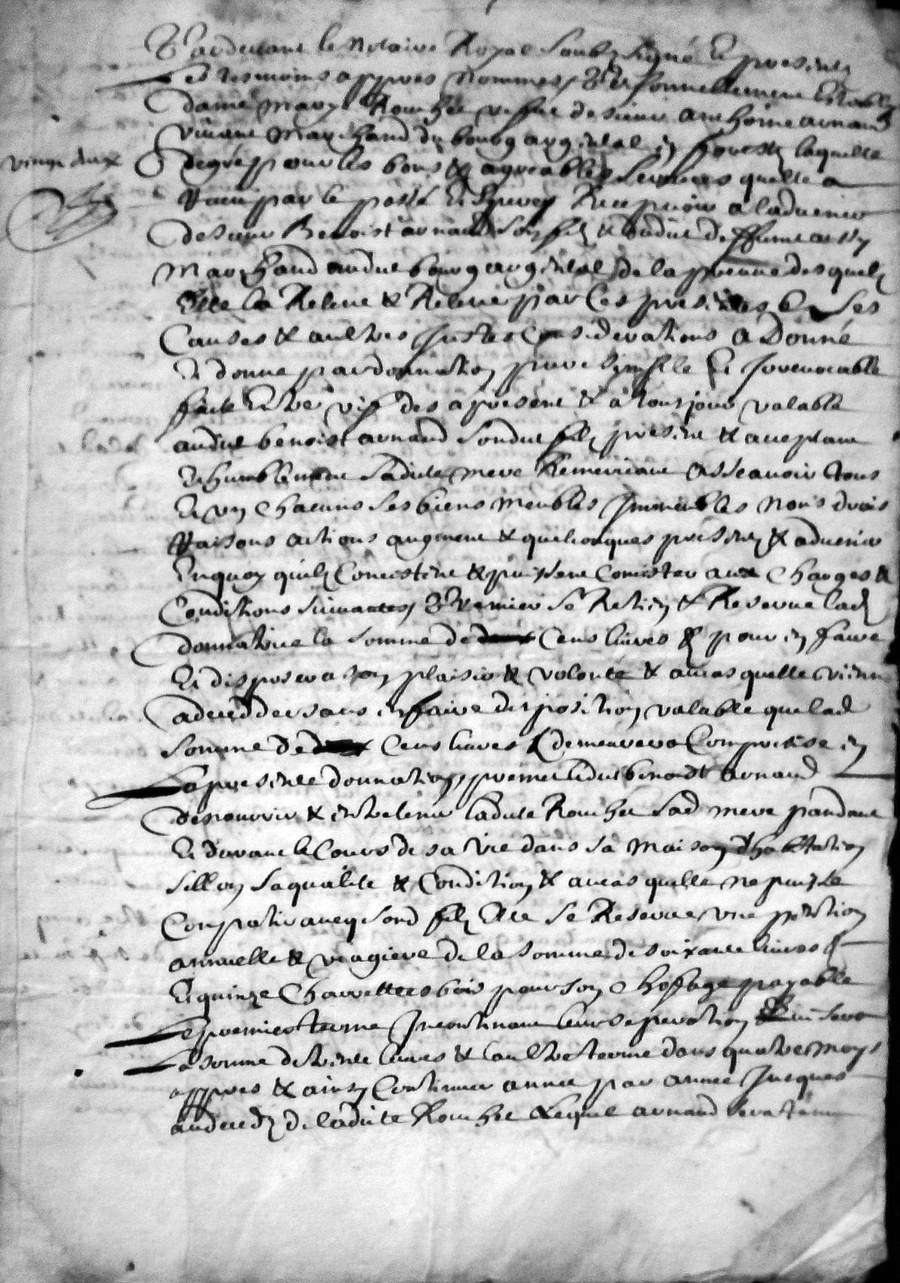 Pardevant le Notaire Royal Soubzsigné Et presents
Les tesmoins appres nommes, Personnellement Establye
dame Marye Rouchée vefve de sieur anthoine arnaud
vivant Marchand du bourg argental en forestz laquelle
vingt deux
de gré pour les bons & agreables services quelle a
Receu par le passé Et Espere Recepvoir a ladvenir
de sieur Benoist arnaud son filz & dudit deffunt aussy
Marchand audit bourg argental de la preuve desquelz
Elle la Releve & Releve par ces presentes & Ses
Causes & aultres justes Considerations a Donné
Et donne par donnation pure simple Et Irrevocable
faite Entre vifz des apresent & a tousjours valable
audit benoist arnaud sondit filz present & acceptant
Et humblement sadite mere Remerciant assçavoir tous
Et un chacuns ses biens meubles Immeubles noms droits
Raisons actions augment & quelconques presents & advenir
En quoy quilz Concistent & puissent Concister aux Charges &
Conditions suivantes, Premier se Retien & Reserve lad
donnatrice la somme de Cens livres pour en faire
Et disposer a son plaisir & volonté & au cas quelle vienne
a decedder sans en faire disposition valable que lad
somme de Cens livres demeurera Comprise en
La presente donnation, promet ledit benoist arnaud
de nourrir & entretenir ladite Rouchée sad mere pandant
Et durant le Cours de sa vie dans sa maison d'habitation
sellon sa qualite & Condition & au cas quelle ne puisse
Compatir avecq sond filz Elle se Reserve une pention
annuelle & viagere de la somme de soixante livres
Et quinze Charrettees bois pour son choffage payable
Le premier terme Incontinant leur seperation qui sera
La somme de trente livres & laultre terme dans quatre moys
appres & ainsy Continuer annee par annee Jusques
au deceds de ladite Rouchée Lequel arnaud sera tenu